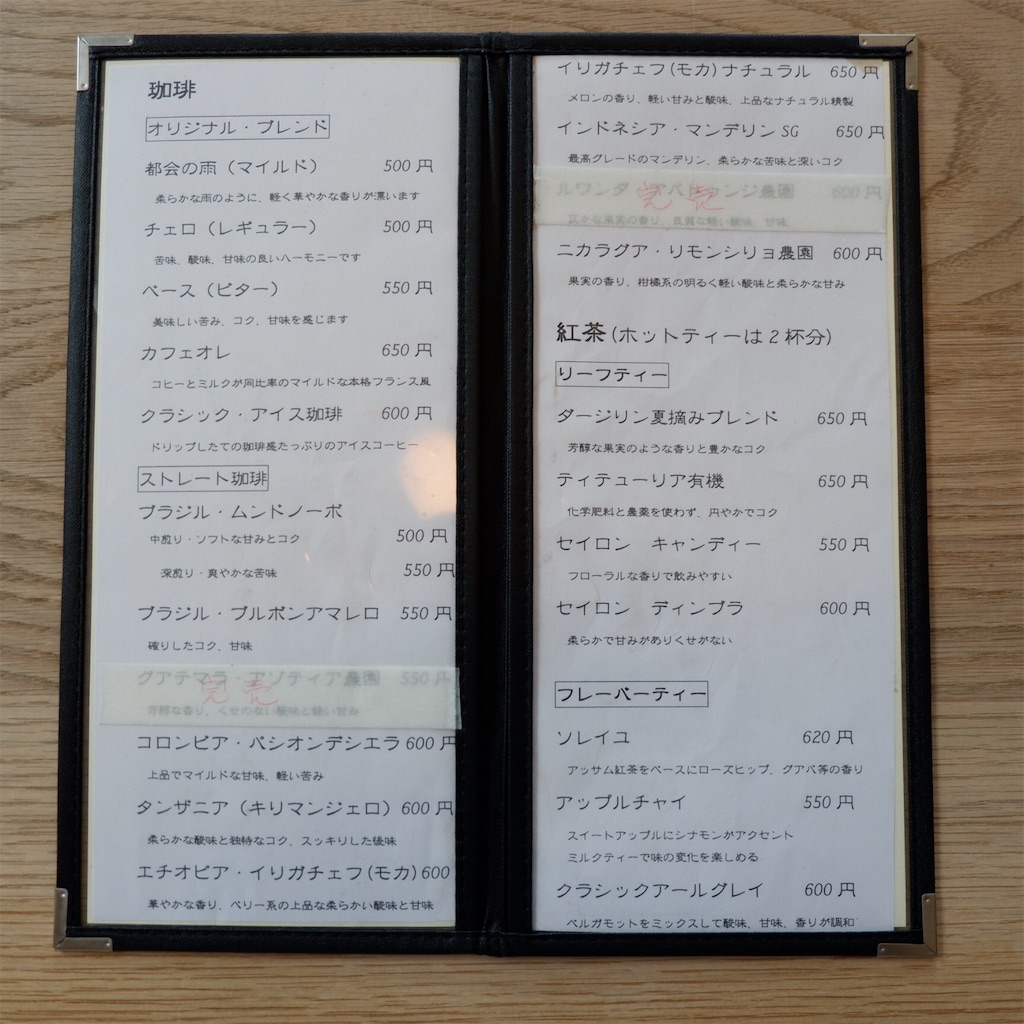 珈琲
オリジナル・ブレンド
都会の雨（マイルド） 500 円
柔らかな雨のように、軽く華やかな香りが漂います
チェロ（レギュラー） 500 円
苦味、酸味、甘味の良いハーモニーです
ベース（ビター） 550 円
美味しい苦み、コク、甘味を感じます
カフェオレ 650 円
コヒーとミルクが同比率のマイルドな本格フランス風
クラシック・アイス珈琲 600 円
ドリップしたての珈琲感たっぷりのアイスコーヒー
ストレート珈琲
ブラジル・ムンドノーボ
中煎り・ソフトな甘みとコク 500 円
深煎り・爽やかな苦味 550 円
ブラジル・ブルボンアマレロ 550 円
確りしたコク、甘味
グアテマラ・アゾティア農園 550 円
完売
芳醇な香り、くせのない酸味と軽い甘み
コロンビア・パシオンデシエラ 600 円
上品でマイルドな甘味、軽い苦み
タンザニア（キリマンジェロ） 600 円
柔らかな酸味と独特なコク、スッキリした後味
エチオピア・イリガチェフ(モカ) 600
華やかな香り、ベリー系の上品な柔らかい酸味と甘味
イリガチェフ(モカ)ナチュラル 650 円
メロンの香り、軽い甘みと酸味、上品なナチュラル精製
インドネシア・マンデリン SG 650 円
最高グレードのマンデリン、柔らかな苦味と深いコク
ルワンダ 農園 600 円
完売
仄かな果実の香り、良質な軽い酸味、甘味、
ニカラグア・リモンシリョ農園 600 円
果実の香り、柑橘系の明るく軽い酸味と柔らかな甘み
紅茶(ホットティーは２杯分)
リーフティー
ダージリン夏摘みブレンド 650 円
芳醇な果実のような香りと豊かなコク
ティテューリア有機 650 円
化学肥料と農薬を使わず、円やかでコク
セイロン　キャンディー 550 円
フローラルな香りで飲みやすい
セイロン　ディンブラ 600 円
柔らかで甘みがありくせがない
フレーバーティー
ソレイユ 620 円
アッサム紅茶をベースにローズヒップ、グアバ等の香り
アップルチャイ 550 円
スイートアップルにシナモンがアクセント
ミルクティーで味の変化を楽しめる
クラシックアールグレイ 600 円
ベルガモットをミックスして酸味、甘味、香りが調和